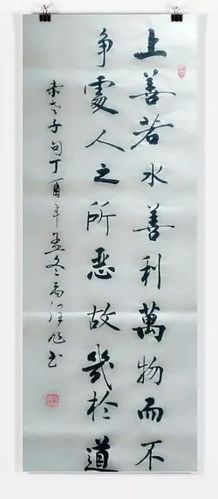 上善若水善利萬物而不
争處人之所恶故幾於道
老子句丁酉年孟冬书